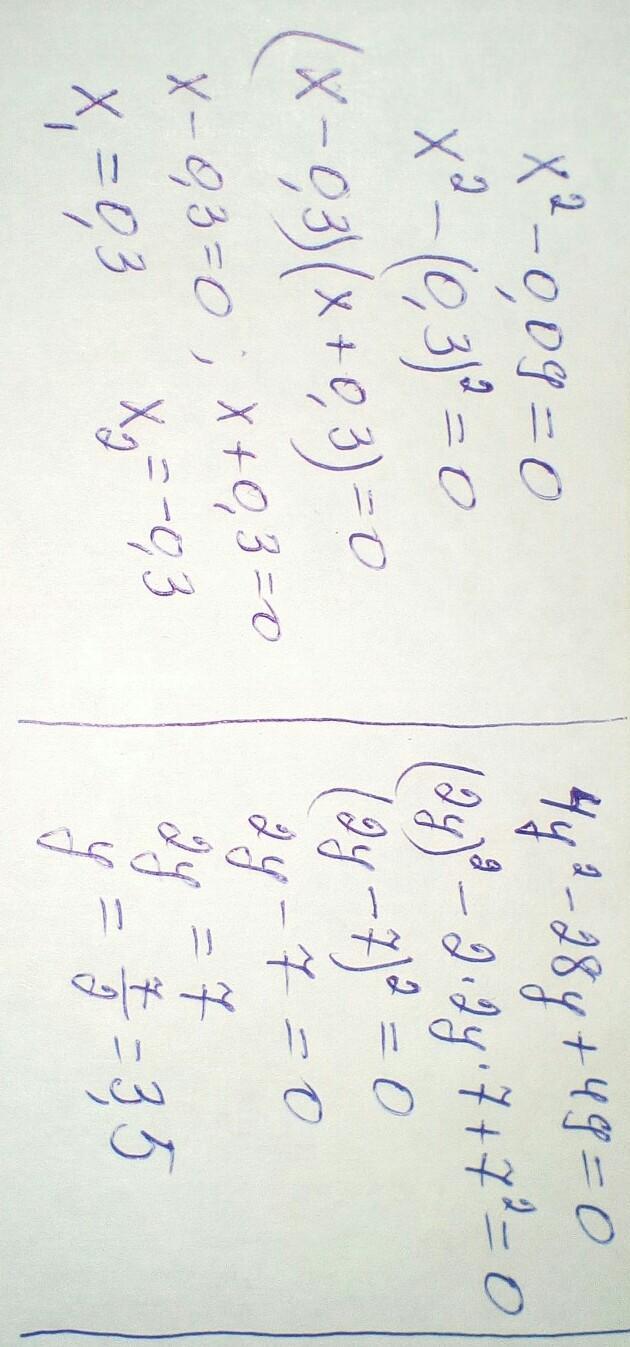 x² - 0,09 = 0
x² - (0,3)² = 0
(x - 0,3)(x + 0,3) = 0
x - 0,3 = 0 ; x + 0,3 = 0
x₁ = 0,3 x₂ = -0,3
4y² - 28y + 49 = 0
(2y)² - 2·2y·7 + 7² = 0
(2y - 7)² = 0
2y - 7 = 0
2y = 7
y = 7/2 = 3,5